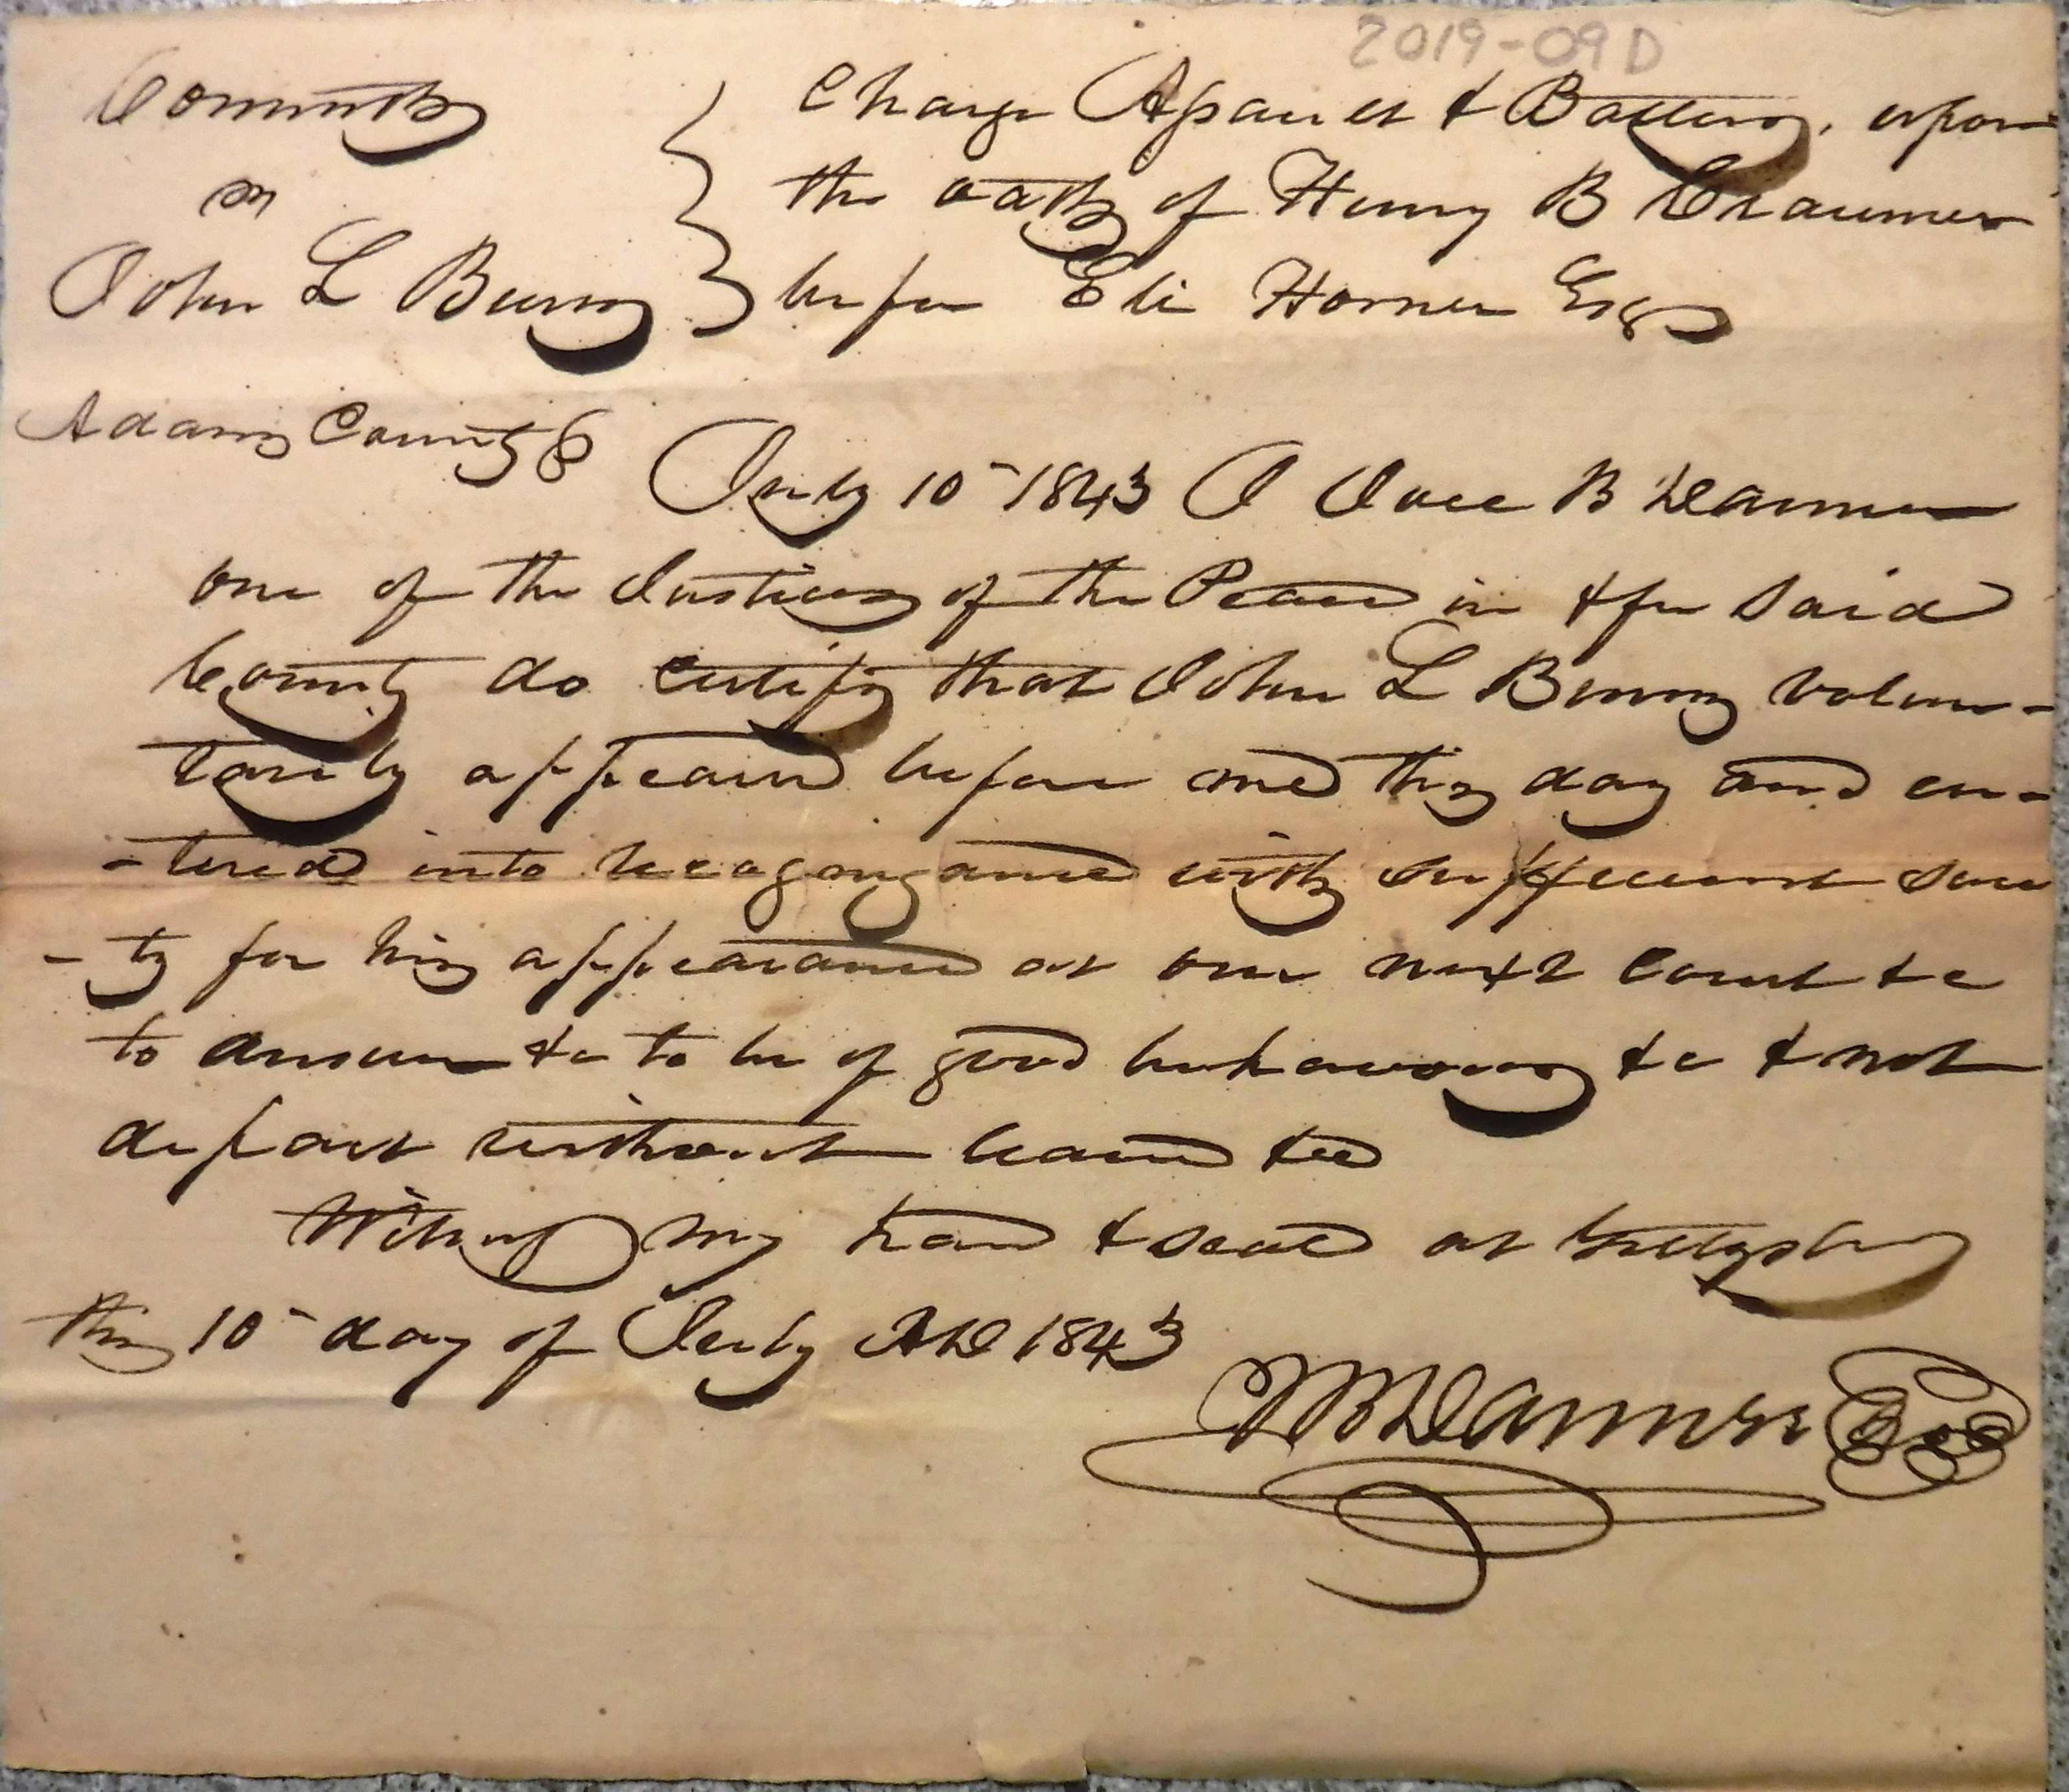 2019-09D
Commth
vs
John L Burns
Charge Assault & Battery, upon
the oath of Henry B
before Eli Horner Esq
Adams County ss
July 10 1843 I Joel B Danner
one of the Justices of the Peace in & for said
County do certify that John L Burns volun-
tarily appeared before me this day and en-
-tered into with sufficient sure
-ty for his appearance at our next Court &c
to answer &c to be of good behaviour &c & not
depart without leave &c
Witness my hand & seal at Gettysburg
this 10 day of July AD 1843
JB Danner